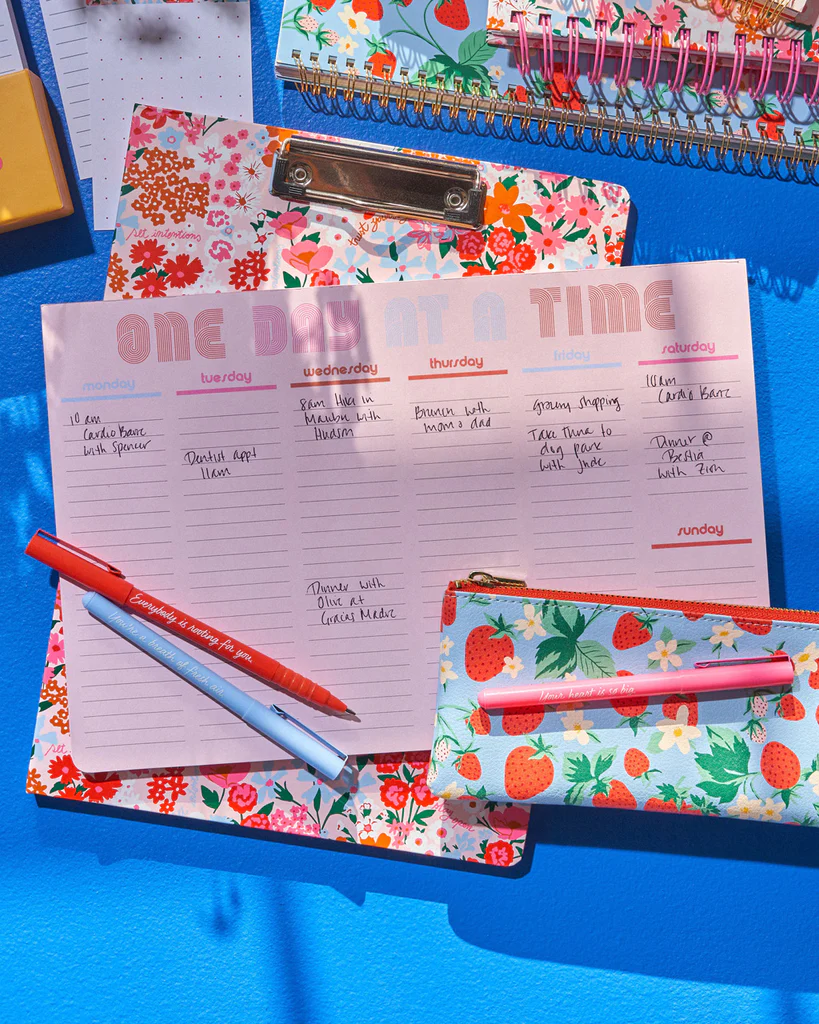 set intentions
trust your
ONE DAY AT A TIME
monday
10 am
Cardio Barre
with Spencer
tuesday
Dentist appt
11am
wednesday
8am Hike in
Malibu with
Hudson
Dinner with
Olive at
Gracias Madre
thursday
Brunch with
mom & dad
friday
Grocery shopping
Take Luna to
dog park
with Jude
saturday
10am
Cardio Barre
Dinner @
Bestia
with Zion
sunday
Everybody is rooting for you.
You're a breath of fresh air.
Your heart is so big.
set